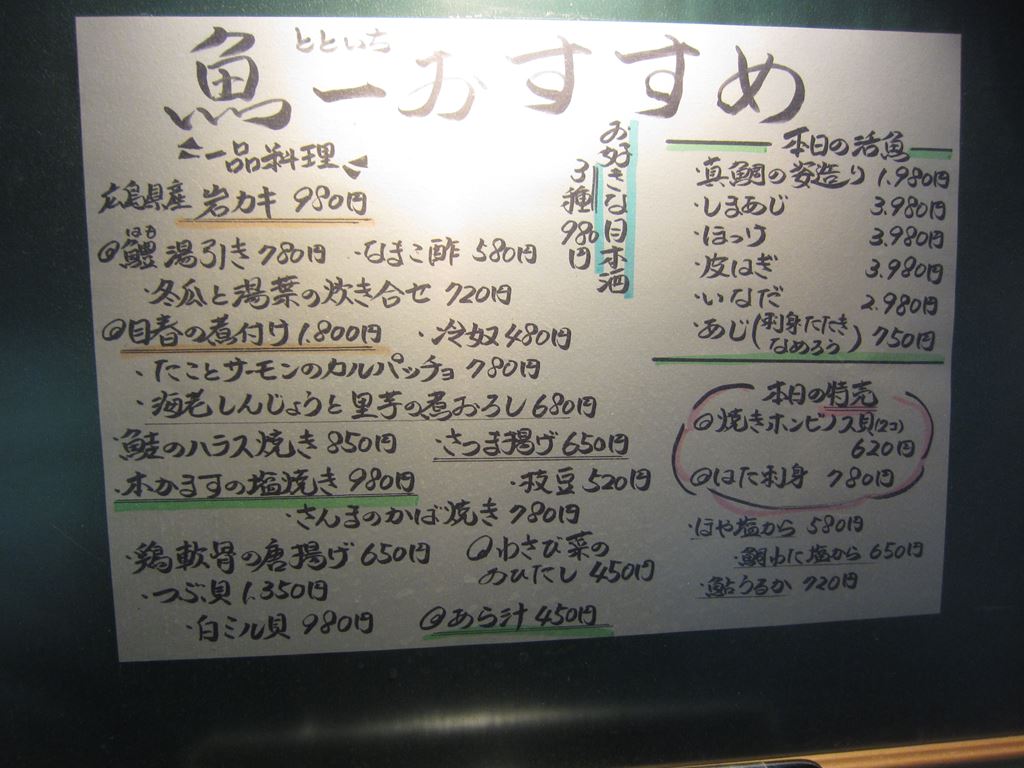 魚一おすすめ
とといち
一品料理
広島県産 岩カキ 980円
◎鱧湯引き 780円 ・なまこ酢 580円
はも
・冬瓜と湯葉の炊き合せ 720円
◎目春の煮付け 1.800円 ・冷奴 480円
・たことサーモンのカルパッチョ 780円
・海老しんじょうと里芋の煮おろし 680円
・鮭のハラス焼き 850円 ・さつま揚げ 650円
・本かますの塩焼き 980円 ・枝豆 520円
・さんまのかば焼き 780円
・鶏軟骨の唐揚げ 650円 ◎わさび菜の
おひたし 450円
・つぶ貝 1.350円
・白ミル貝 980円 ◎あら汁 450円
お好きな日本酒
3種 980円
本日の活魚
・真鯛の姿造り 1.980円
・しまあじ 3.980円
・ほっけ 3.980円
・皮はぎ 3.980円
・いなだ 2.980円
・あじ(刺身たたき なめろう) 750円
本日の特売
◎焼きホンビノス貝(2コ)
620円
◎はた刺身 780円
・ほや塩から 580円
・鯛わた塩から 650円
・鮎うるか 720円